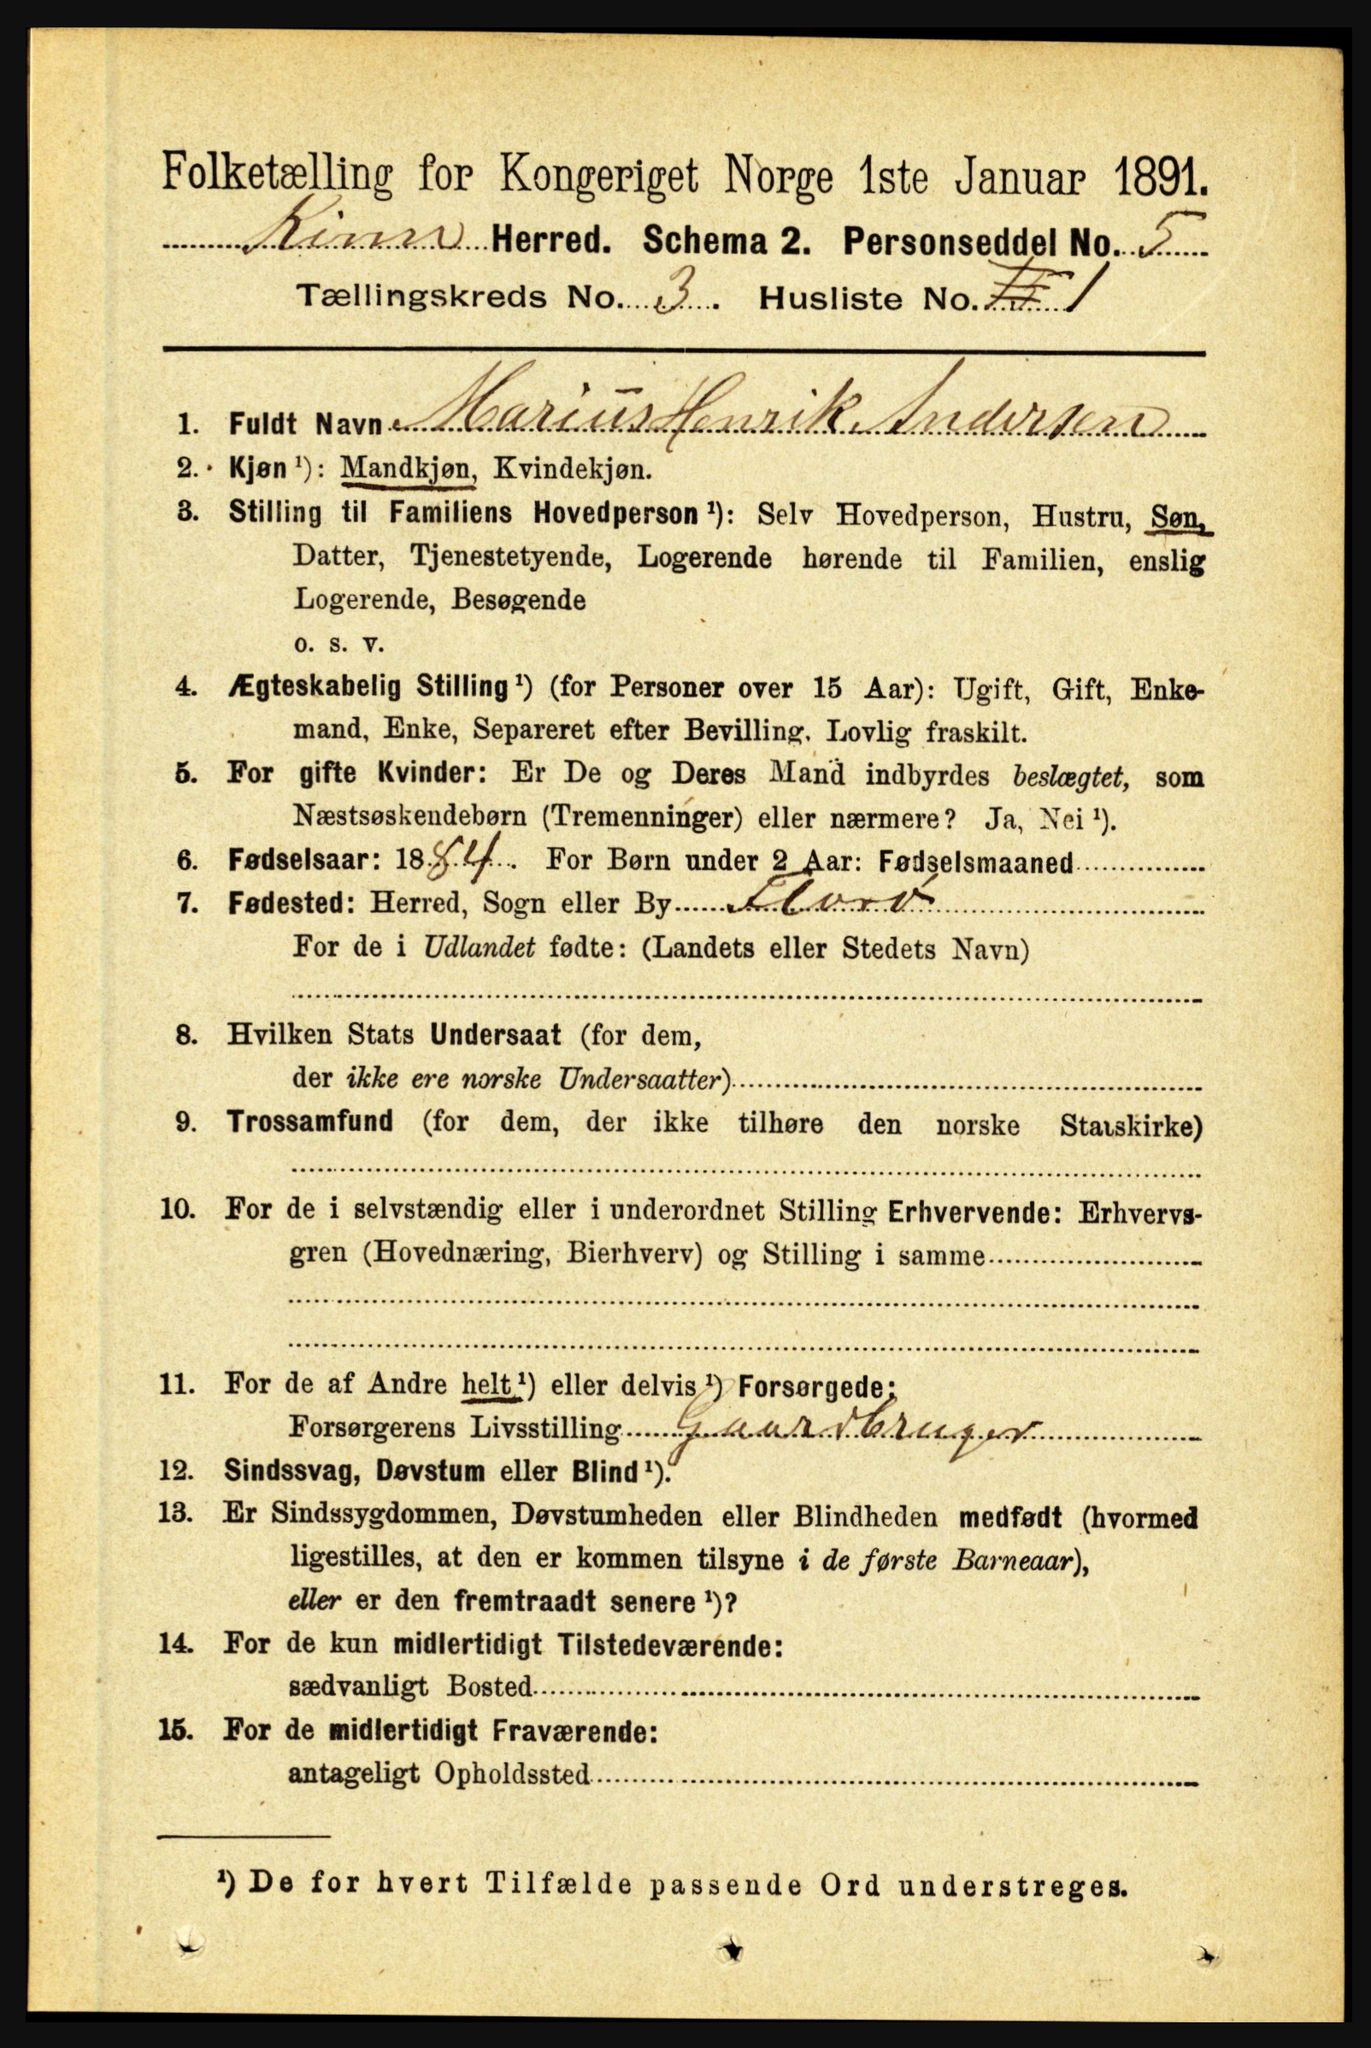 Folketælling for Kongeriget Norge 1ste Januar 1891.
Kinn Herred. Schema 2. Personseddel No. 5
Tællingskreds No. 3. Husliste No. 1
1. Fuldt Navn Marius Henrik Andersen
2. Kjøn ¹): Mandkjøn, Kvindekjøn.
3. Stilling til Familiens Hovedperson ¹): Selv Hovedperson, Hustru, Søn,
Datter, Tjenestetyende, Logerende hørende til Familien, enslig
Logerende, Besøgende
o. s. v.
4. Ægteskabelig Stilling ¹) (for Personer over 15 Aar): Ugift, Gift, Enke-
mand, Enke, Separeret efter Bevilling. Lovlig fraskilt.
5. For gifte Kvinder: Er De og Deres Mand indbyrdes beslægtet, som
Næstsøskendebørn (Tremenninger) eller nærmere? Ja, Nei ¹).
6. Fødselsaar: 1884. For Børn under 2 Aar: Fødselsmaaned
7. Fødested: Herred, Sogn eller By Florø
For de i Udlandet fødte: (Landets eller Stedets Navn)
8. Hvilken Stats Undersaat (for dem,
der ikke ere norske Undersaatter)
9. Trossamfund (for dem, der ikke tilhøre den norske Statskirke)
10. For de i selvstændig eller i underordnet Stilling Erhvervende: Erhvervs-
gren (Hovednæring, Bierhverv) og Stilling i samme
11. For de af Andre helt ¹) eller delvis ¹) Forsørgede:
Forsørgerens Livsstilling Gaardbruger
12. Sindssvag, Døvstum eller Blind ¹).
13. Er Sindssygdommen, Døvstumheden eller Blindheden medfødt (hvormed
ligestilles, at den er kommen tilsyne i de første Barneaar),
eller er den fremtraadt senere ¹)?
14. For de kun midlertidigt Tilstedeværende:
sædvanligt Bosted
15. For de midlertidigt Fraværende:
antageligt Opholdssted
¹) De for hvert Tilfælde passende Ord understreges.